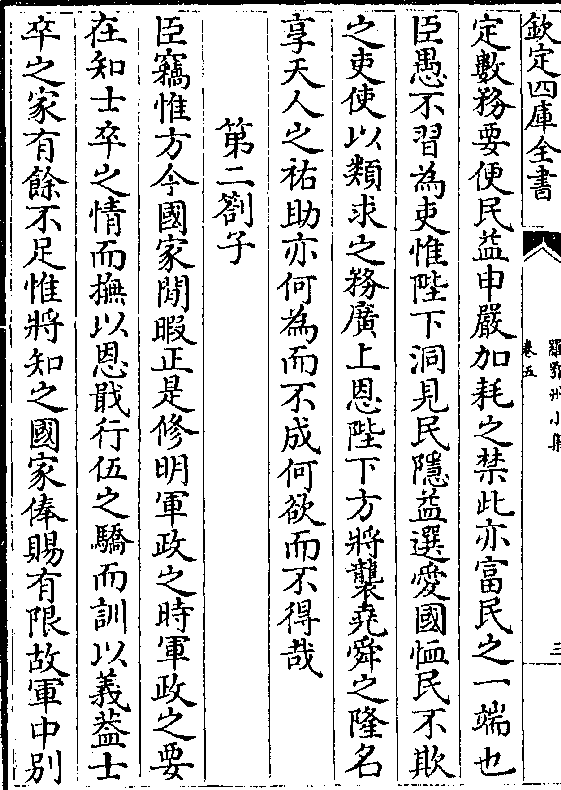 欽定四庫全書
羅鄂州小集
卷五
三
定數務要便民益申嚴加耗之禁此亦富民之一端也
臣愚不習為吏惟陛下洞見民隱益選愛國恤民不欺
之吏使以類求之務廣上恩陛下方將襲堯舜之隆名
享天人之祐助亦何為而不成何欲而不得哉
第二劄子
臣竊惟方今國家閒暇正是修明軍政之時軍政之要
在知士卒之情而撫以恩戢行伍之驕而訓以義葢士
卒之家有餘不足惟將知之國家俸賜有限故軍中别